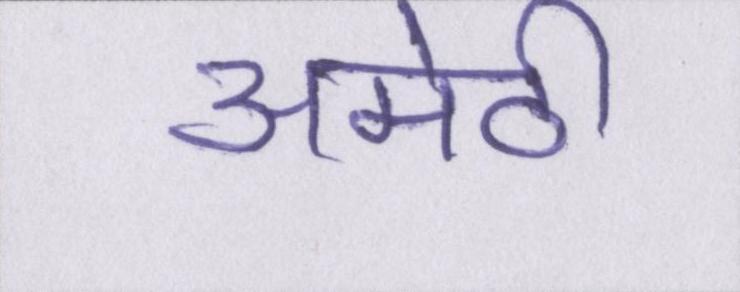 अमेठी